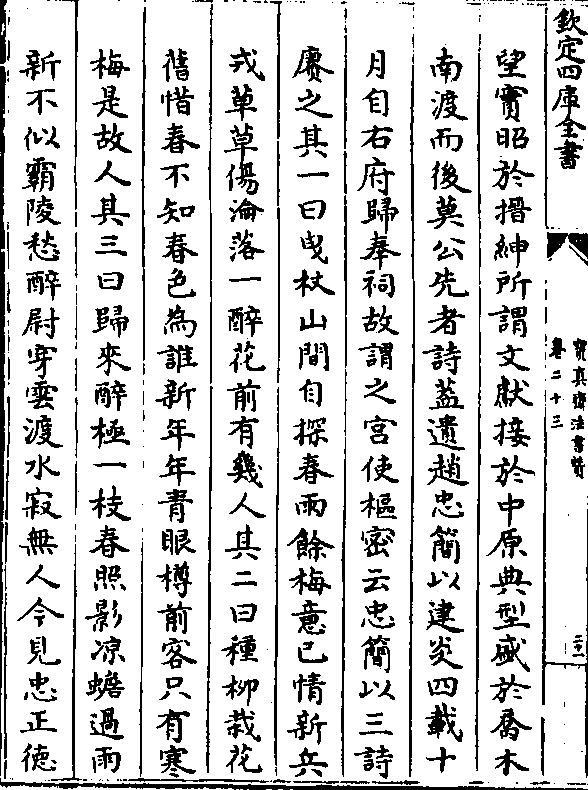 欽定四庫全書
寶真齋法書贊
卷二十三
二十一
望實昭於搢紳所謂文獻接於中原典型盛於喬木
南渡而後莫公先者詩葢遺趙忠簡以建炎四載十
月自右府歸奉祠故謂之宮使樞密云忠簡以三詩
賡之其一曰曵杖山間自探春雨餘梅意已情新兵
戎草草傷淪落一醉花前有幾人其二曰種栁栽花
舊惜春不知春色為誰新年年青眼樽前客只有寒
梅是故人其三曰歸來醉極一枝春照影凉蟾過雨
新不似霸陵愁醉尉穿雲渡水寂無人今見忠正徳